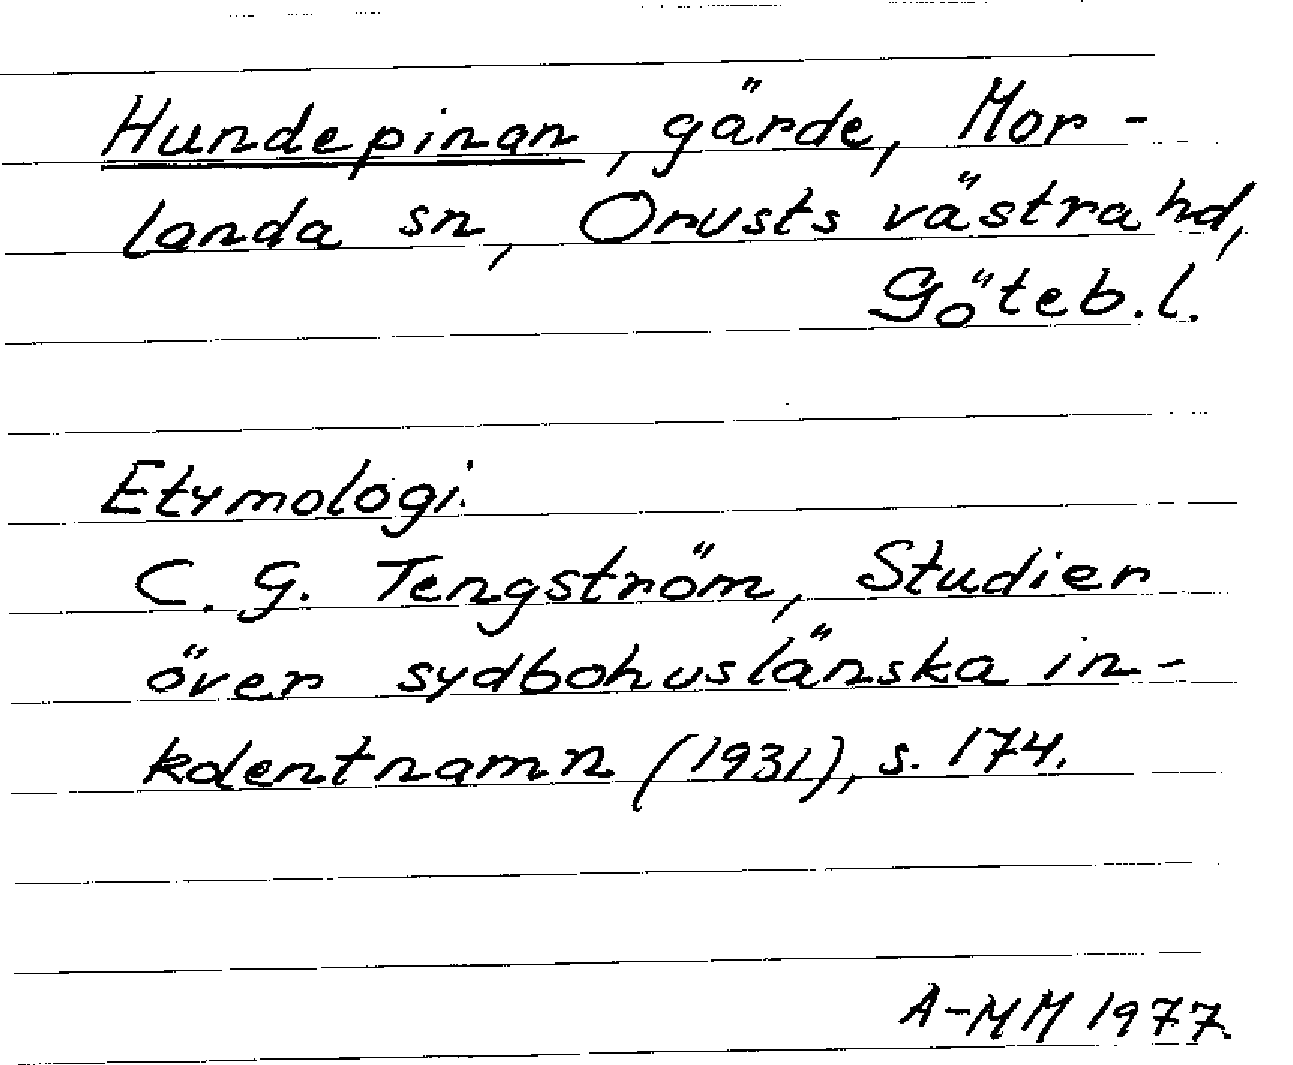 Hundepinan, gärde, Mor-
landa sn, Orusts västra hd,
Göteb.l.
Etymologi:
C. G. Tengström, Studier
över sydbohuslänska in-
kolentnamn (1931), s. 174.
A-MM 1977